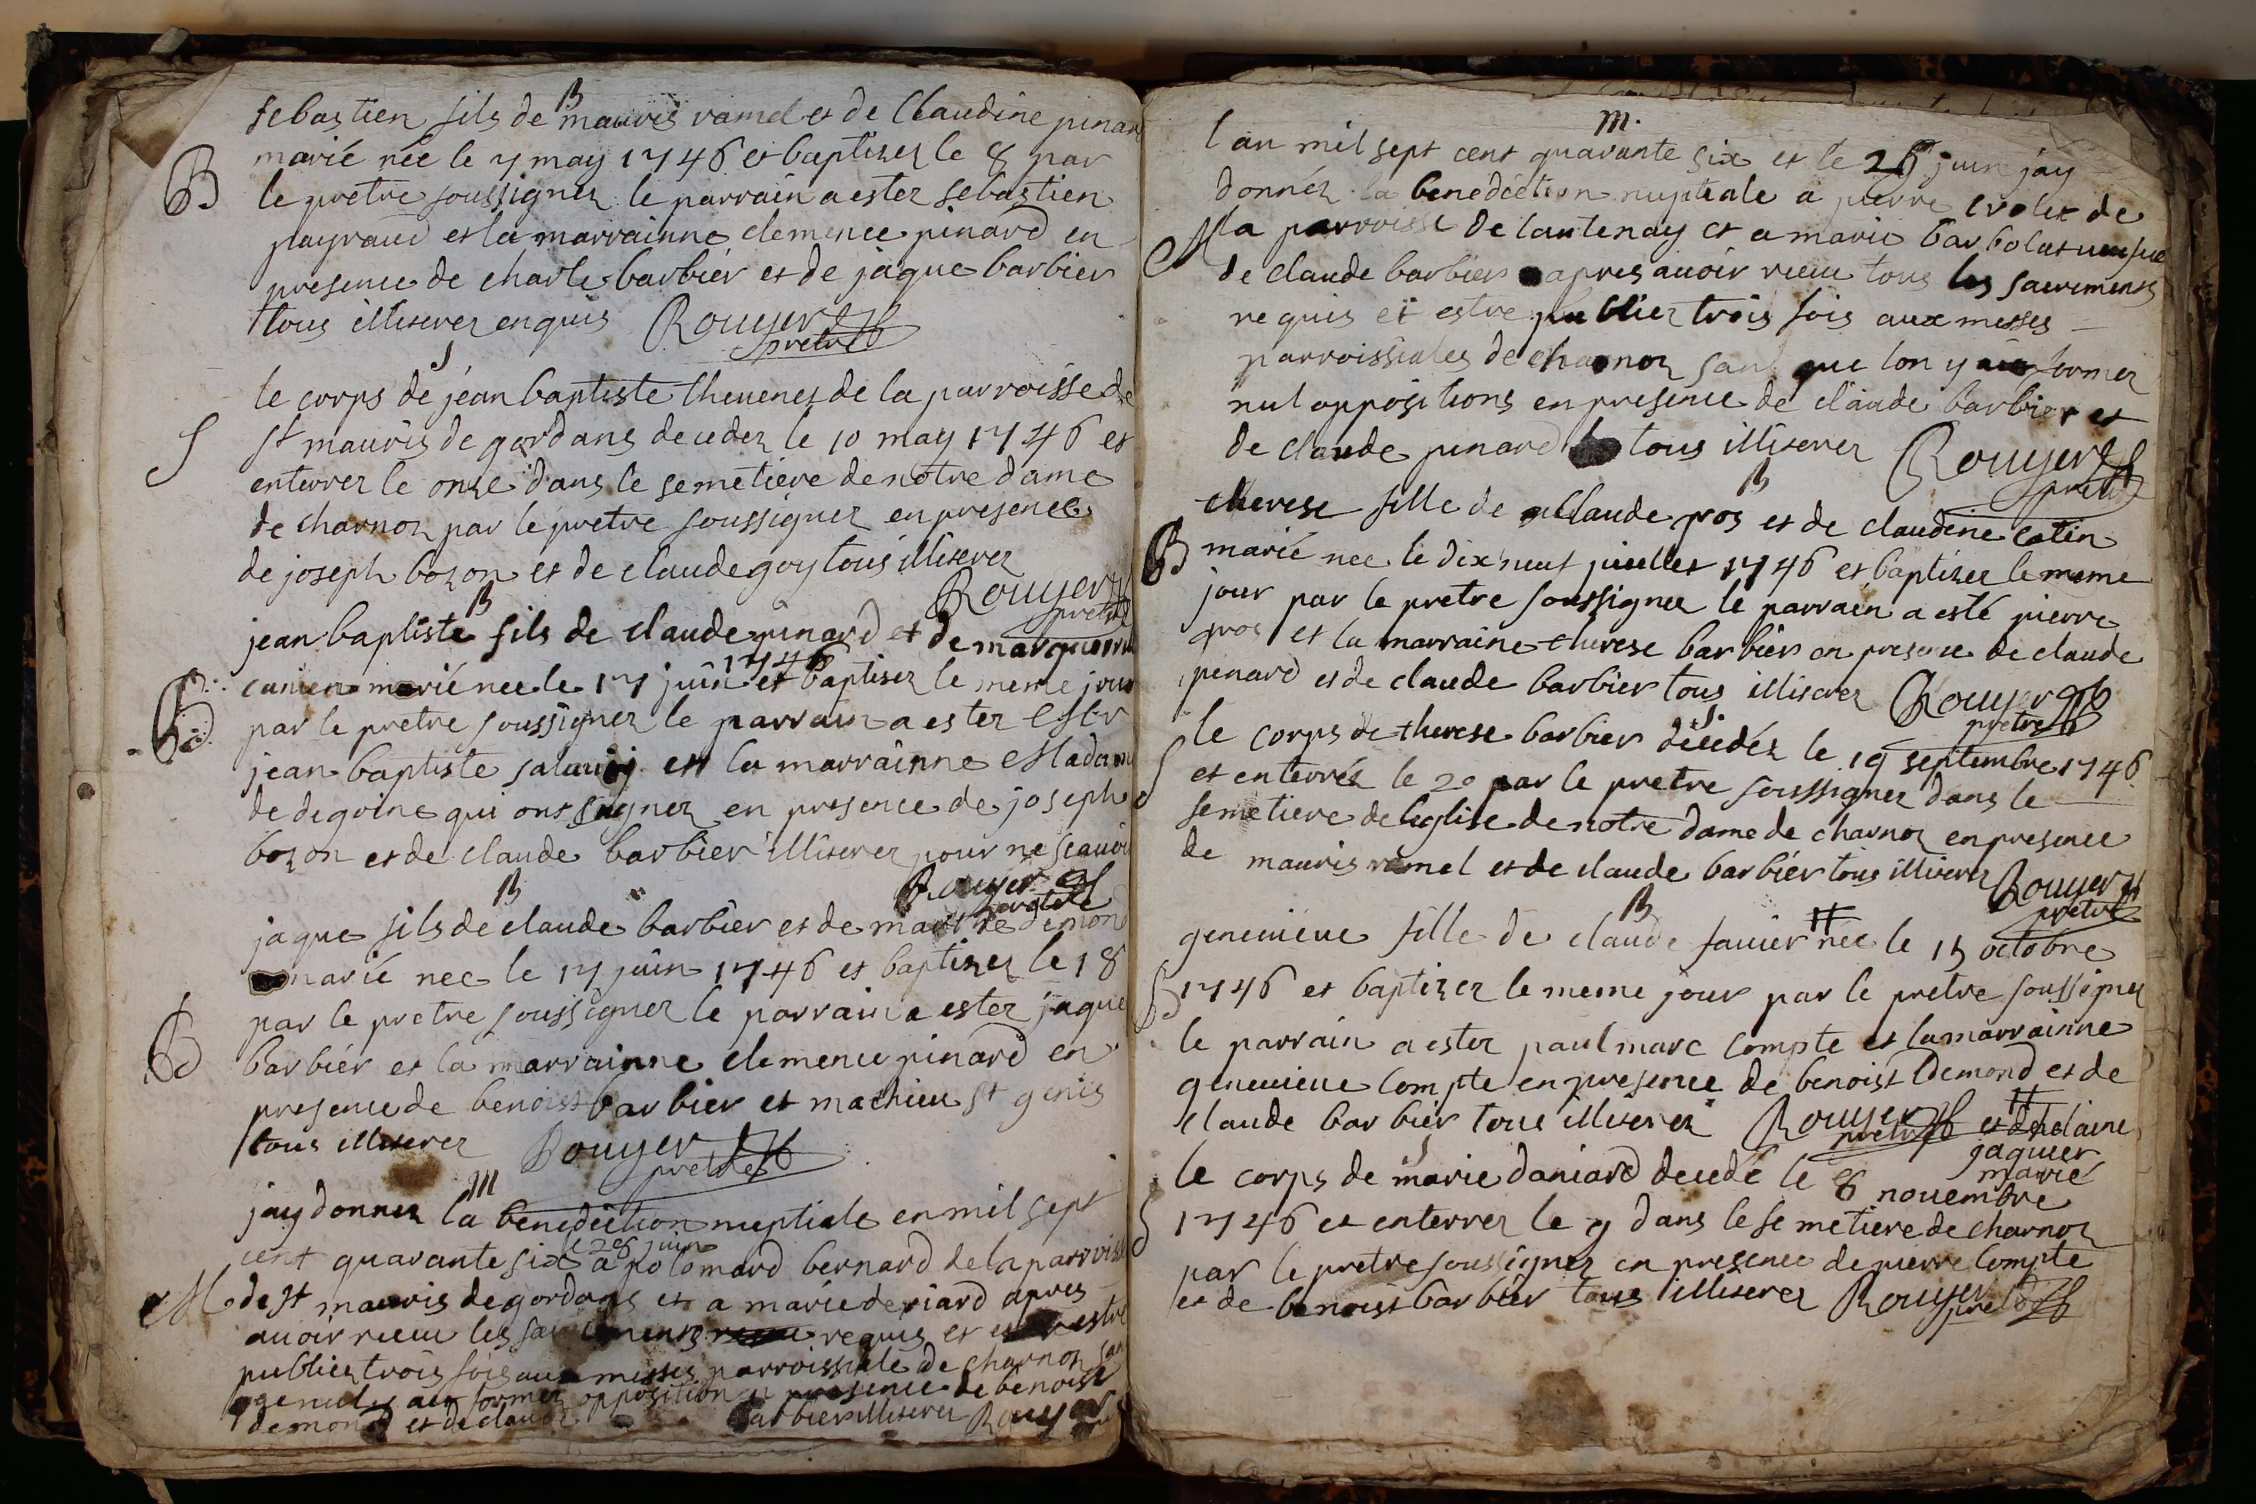 B
sebastien fils de mauris ramel et de Claudine pinar
marié née le 7 may 1746 et baptisez le 8 par
B le pretre soussignez le parrain a estez sebastien
payraud et la marrainne clemence pinard en
presence de charle barbier et de jaque barbier
tous illiterez enquis Rouyer
pretre
S
le corps de jean baptiste thevenet de la parroisse de
S st mauris de gordans decedez le 10 may 1746 et
enterrez le onze dans le semetiere de notre dame
de charnoz par le pretre soussignez en presence
de joseph bozon et de claude goy tous illiterez
Rouyer
pretre
B
jean baptiste fils de claude pinard et de marguerit
1746
B marié nee le 17 juin et baptisez le meme jour
par le pretre soussignez le parrain a estez
jean baptiste et la marrainne Madame
de degoine qui ont signez en presence de joseph
bozon et de claude barbier illiterez pour ne scavoi
Rouyer
pretre
B
jaque fils de claude barbier et de demond
marié nee le 17 juin 1746 et baptisez le 18
par le pretre soussignez le parrain a estez jaque
B barbier et la marrainne clemence pinard en
presence de benoist barbier et mathieu st genis
tous illiterez Rouyer
pretre
m
jay donnez la benediction nuptiale en mil sept
le 28 juin
cent quarante six a polomard bernard de la parroisse
M de st mauris de gordans et a marie deriard apres
avoir receu les sacrements requis et estre
publiez trois fois aux messes parroissiale de charnoz san
que nul y aie formez opposition en presence de benoist
demond et de claude barbier illiterez Rouyer
m.
l an mil sept cent quarante six et le 28 juin jay
donnéz la benediction nuptiale a pierre evolet de
M la parroisse de lantenay et a marie barbolat veufve
de claude barbier apres avoir receu tous les sacrements
requis et estre publiez trois fois aux messes
parroissiales de charnoz san que lon y aie formez
nul oppositions en presence de claude barbier et
de claude pinard tous illiterez Rouyer
pretre
B
therese fille de Claude gros et de claudine catin
B marié nee le dix neuf juillet 1746 et baptizee le meme
jour par le pretre soussignez le parrain a esté pierre
gros et la marraine therese barbier en presence de claude
pinard et de claude barbier tous illiterez Rouyer
pretre
S.
le corps de therese barbier décédéz le 19 septembre 1746
S et enterréz le 20 par le pretre soussignez dans le
semetiere de leglise de notre dame de charnoz en presence
de mauris ramel et de claude barbier tous illiterez
Rouyer
pretre
B
genevieve fille de claude janier # nee le 15 octobre
B 1746 et baptizez le meme jour par le pretre soussignez
le parrain a estez paul marc compte et la marrainne
genevieve compte en presence de benoist Demond et de
claude barbier tous illiterez Rouyer
pretre
# et de claine
jaquier
marié
S
le corps de marie daniard decedé le 8 novembre
S 1746 et enterrez le 9 dans le semetiere de charnoz
par le pretre soussignez en presence de pierre compte
et de benoist barbier tous illiterez Rouyer
pretre